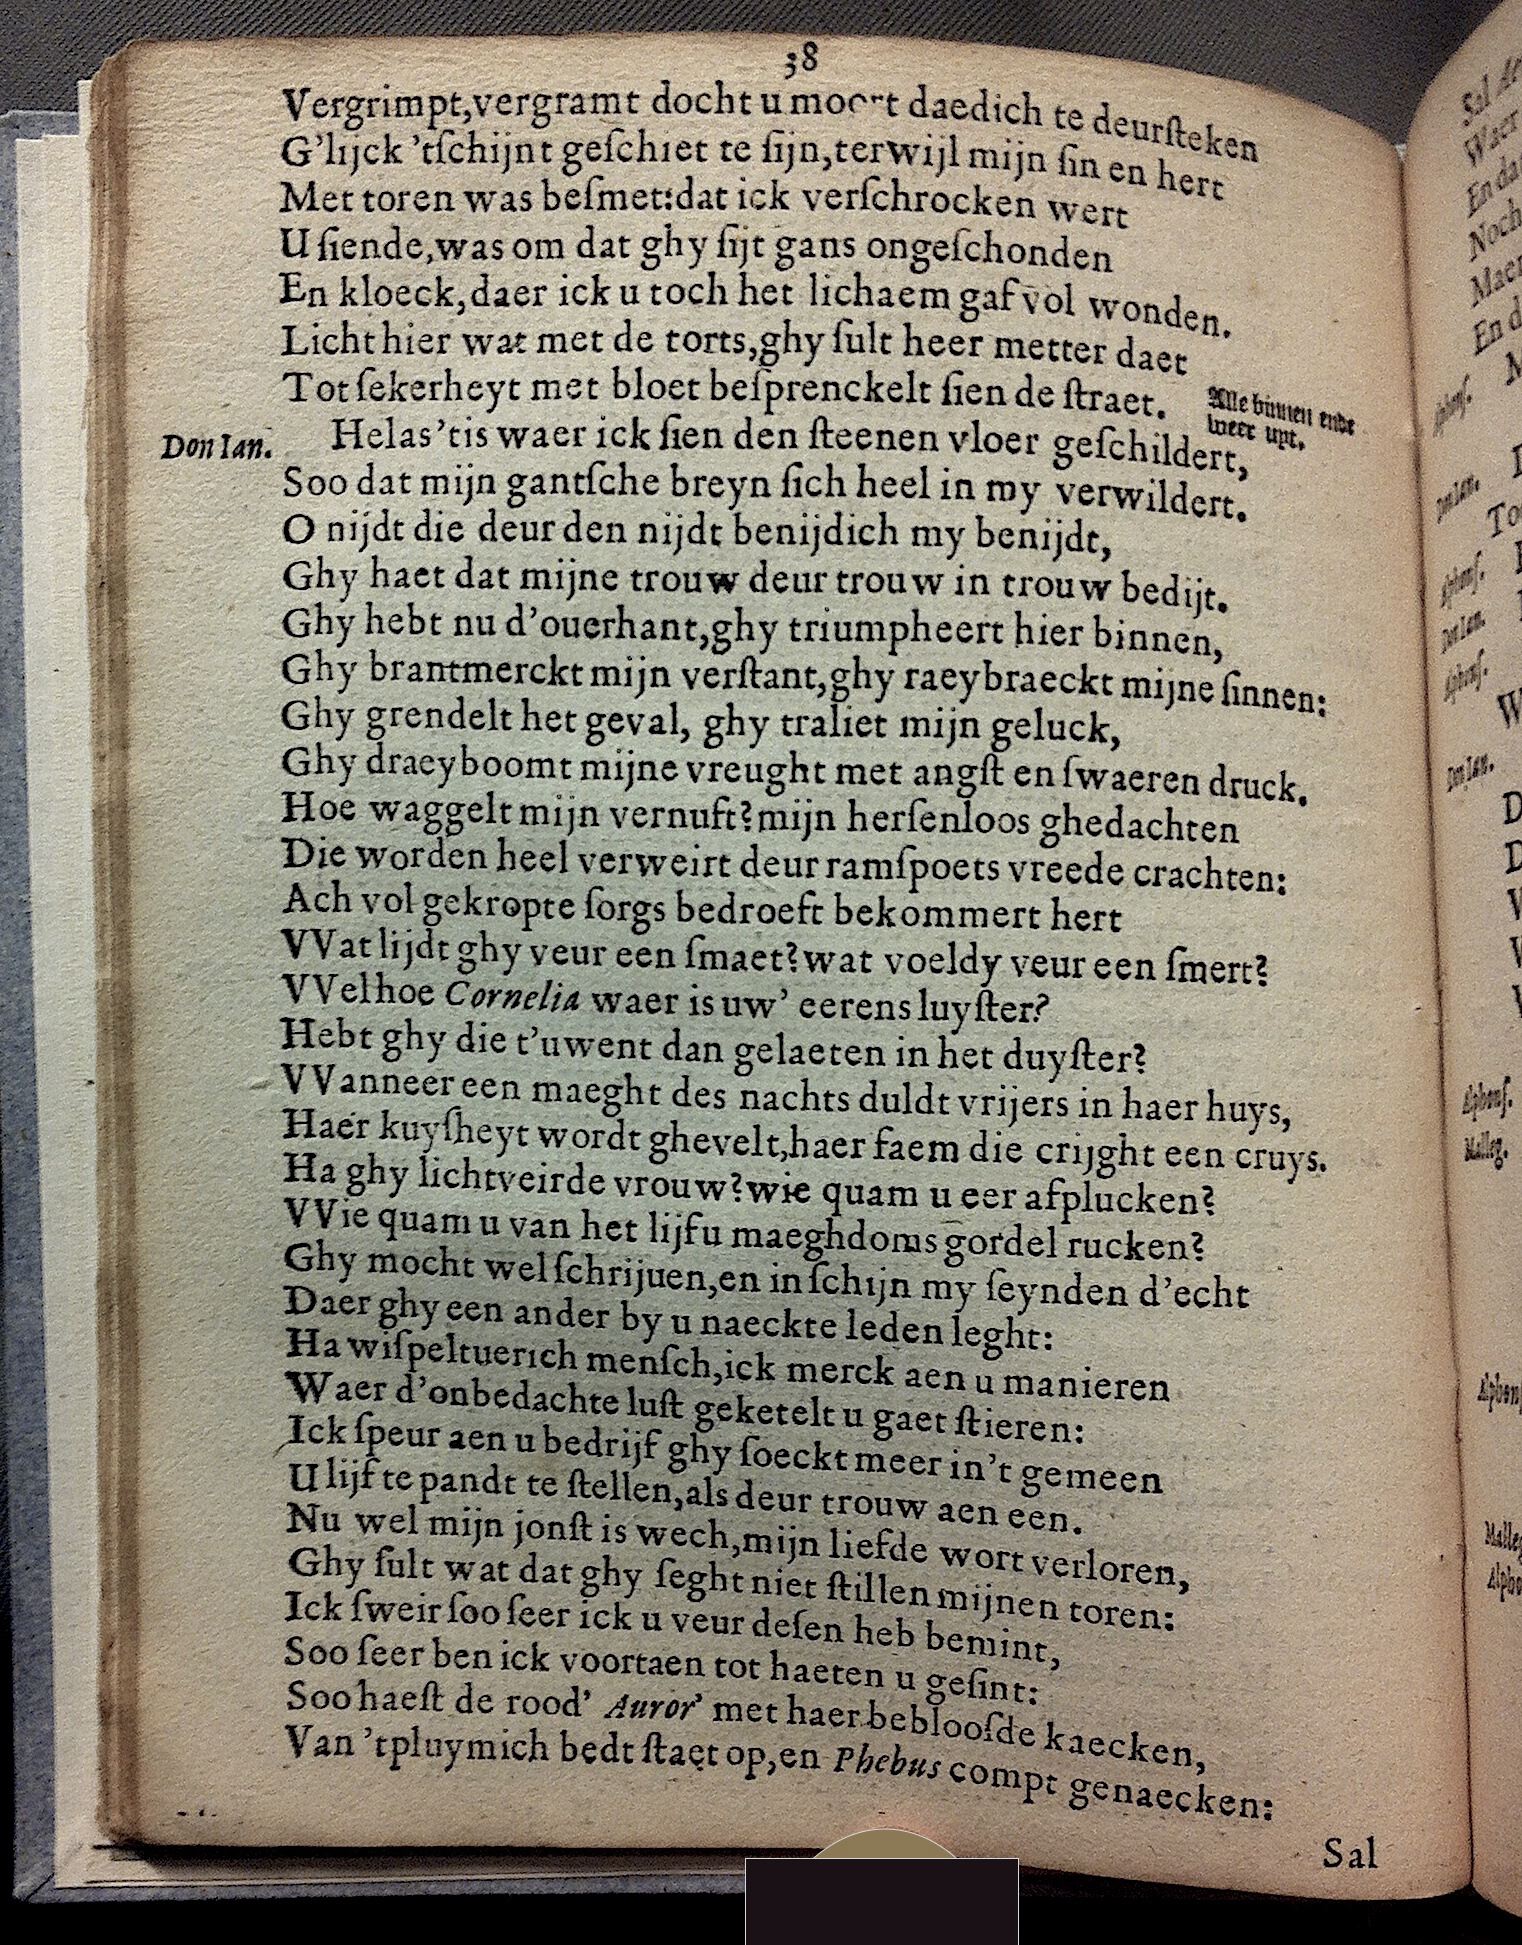 38
Vergrimpt,vergramt docht u moort daedich te deurſteken
G'lijck 'tſchijnt geſchiet te ſijn,terwijl mijn ſin en hert
Met toren was beſmet:dat ick verſchrocken wert
U ſiende,was om dat ghy ſijt gans ongeſchonden
En kloeck,daer ick u toch het lichaem gaf vol wonden.
Licht hier wat met de torts,ghy ſult heer metter daet
Tot ſekerheyt met bloet beſprenckelt ſien de ſtraet.
Alle binnen ende
weer uyt.
Don Ian. Helas 'tis waer ick ſien den ſteenen vloer geſchildert,
Soo dat mijn gantſche breyn ſich heel in my verwildert.
O nijdt die deur den nijdt benijdich my benijdt,
Ghy haet dat mijne trouw deur trouw in trouw bedijt.
Ghy hebt nu d'ouerhant,ghy triumpheert hier binnen,
Ghy brantmerckt mijn verſtant,ghy raeybraeckt mijne ſinnen:
Ghy grendelt het geval, ghy traliet mijn geluck,
Ghy draeyboomt mijne vreught met angſt en ſwaeren druck.
Hoe waggelt mijn vernuft?mijn herſenloos ghedachten
Die worden heel verweirt deur ramſpoets vreede crachten:
Ach vol gekropte ſorgs bedroeft bekommert hert
VVat lijdt ghy veur een ſmaet?wat voeldy veur een ſmert?
VVelhoe Cornelia waer is uw' eerens luyſter?
Hebt ghy die t'uwent dan gelaeten in het duyſter?
VVanneer een maeght des nachts duldt vrijers in haer huys,
Haer kuyſheyt wordt ghevelt,haer faem die crijght een cruys.
Ha ghy lichtveirde vrouw?wie quam u eer afplucken?
VVie quam u van het lijf u maeghdoms gordel rucken?
Ghy mocht wel ſchrijuen,en in ſchijn my ſeynden d'echt
Daer ghy een ander by u naeckte leden leght:
Ha wiſpeltuerich menſch,ick merck aen u manieren
Waer d'onbedachte luſt geketelt u gaet ſtieren:
Ick ſpeur aen u bedrijf ghy ſoeckt meer in't gemeen
U lijf te pandt te ſtellen,als deur trouw aen een.
Nu wel mijn jonſt is wech,mijn liefde wort verloren,
Ghy ſult wat dat ghy ſeght niet ſtillen mijnen toren:
Ick ſweir ſoo ſeer ick u veur deſen heb bemint,
Soo ſeer ben ick voortaen tot haeten u geſint:
Soo haeſt de rood' Auror' met haer beblooſde kaecken,
Van 'tpluymich bedt ſtaet op,en Phebus compt genaecken:
Sal